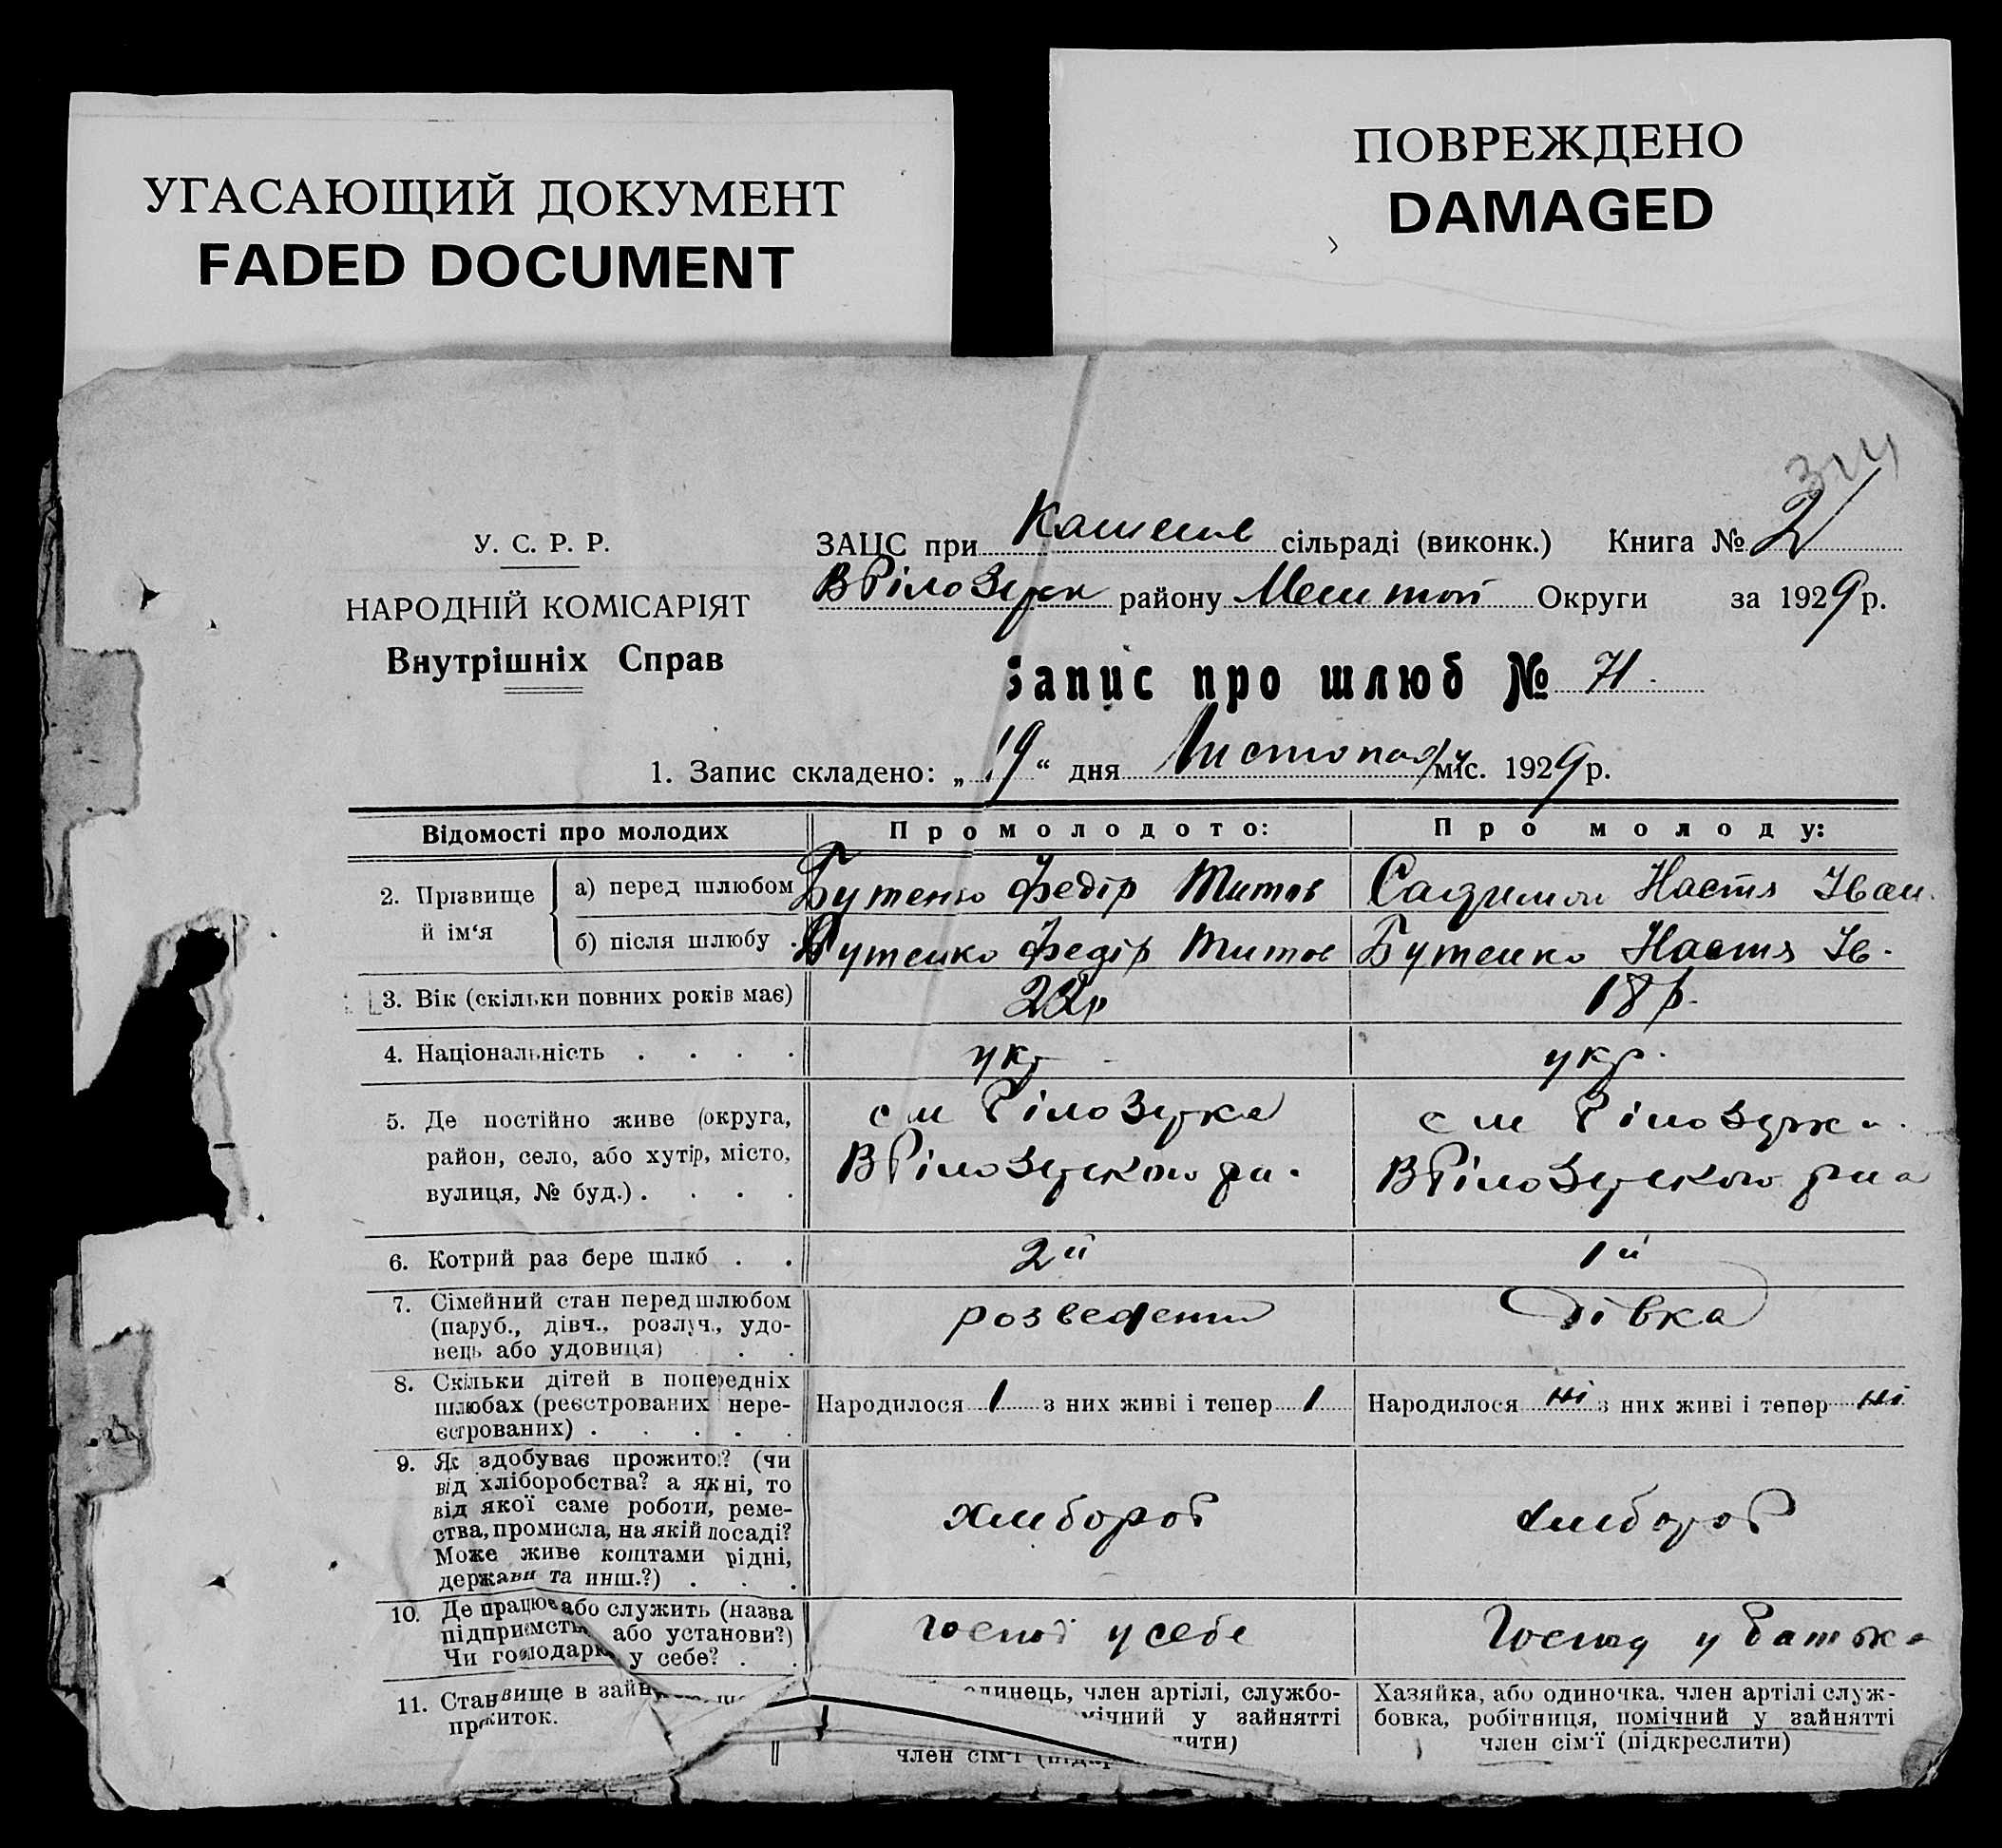 УГАСАЮЩИЙ ДОКУМЕНТ
FADED DOCUMENT
ПОВРЕЖДЕНО
DAMAGED
У. С. Р. Р.
НАРОДНІЙ КОМІСАРІЯТ
Внутрішніх Справ
ЗАЦС при сільраді (виконк.) Книга № 2
району Округи за 1929 р.
Запис про шлюб № 71.
1. Запис складено: „19“ дня Листопад міс. 1929 р.
Відомості про молодих
Про молодого:
Про молоду:
2. Прізвище й ім‘я
а) перед шлюбом
Бутенко Федір Титов
Настя Іван.
б) після шлюбу .
Бутенко Федір Титов
Бутенко Настя Ів.
3. Вік (скільки повних років має)
22р
18 р.
4. Національність . . . .
укр
укр.
5. Де постійно живе (округа,
район, село, або хутір, місто,
вулиця, № буд.) . . . .
6. Котрий раз бере шлюб . .
2й
1й
7. Сімейний стан перед шлюбом
(паруб., дівч., розлуч., удо-
вець або удовиця) . .
розведений
дівка
8. Скільки дітей в попередніх
шлюбах (реєстрованих нере-
єстрованих) . . . . .
Народилося 1 з них живі і тепер 1
Народилося ні з них живі і тепер ні
9. Як здобуває прожиток? (чи
від хліборобства? а як ні, то
від якої саме роботи, реме-
ства, промисла, на якій посаді?
Може живе коштами рідні,
держави та инш.?) . . .
хлибороб
хлибороб
10. Де працює або служить (назва
підприємства або установи?)
Чи господарює у себе? . .
госпо у себе
Господ у батька
11. Становище в
прожиток.
одинець, член артілі, службо-
помічний у зайнятті
член сім‘ї
Хазяйка, або одиночка. член артілі служ-
бовка, робітниця, помічний у зайнятті
член сім‘ї (підкреслити)